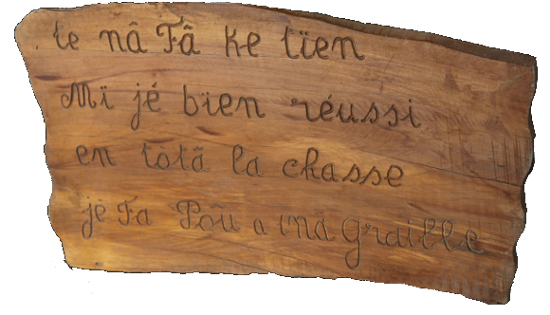 te nâ Fâ Ke tïen
Mï jé bïen réussi
en totâ la chasse
jë Fa Poû a ïnâ graille